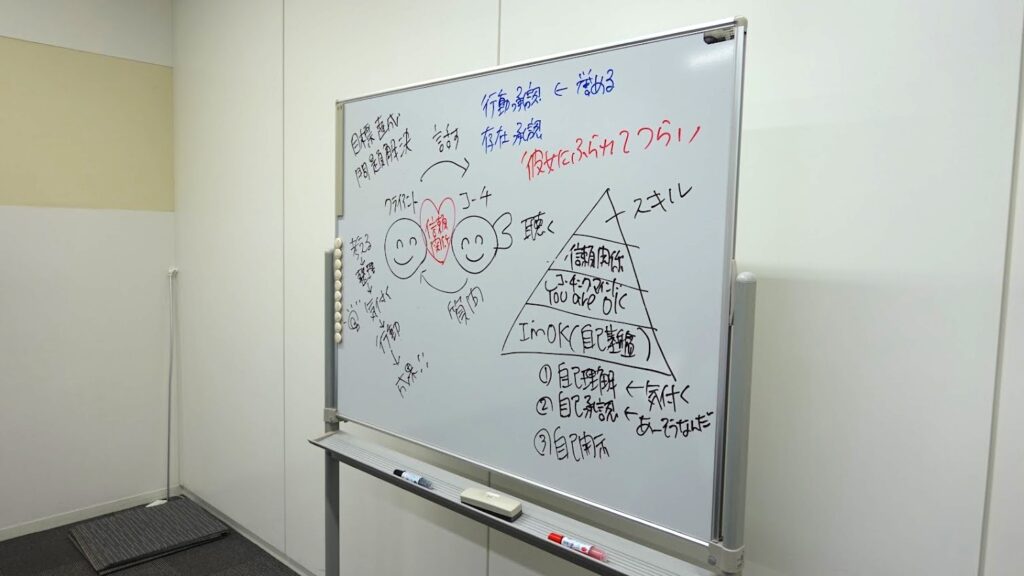 目標達成
問題解決
話す
行動承認 ← 誉める
存在承認
彼女にふられてつらい
クライアント
コーチ
信頼
関係
聴く
質問
考える
↓
整理
↓
気付く
↓
行動
↓
成果!!!
スキル
信頼関係
コーチングマインド
You are OK
I'm OK(自己基盤)
① 自己理解 ← 気付く
② 自己承認 ← あーそうなんだ
③ 自己